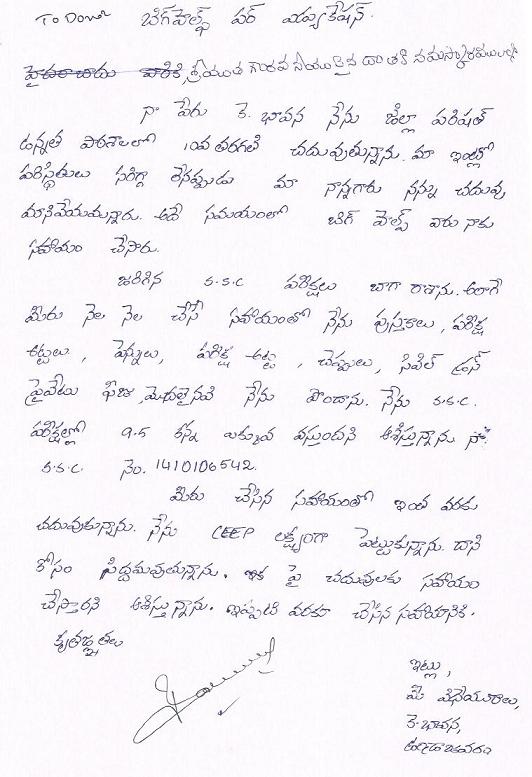 To Donor బిగ్ హెల్ప్ ఫర్ ఎడ్యుకేషన్.
హైదరాబాదు వారికి, శ్రీయుత గౌరవనీయులైన దాతకి నమస్కారములు
నా పేరు కె. భావన నేను జిల్లా పరిషత్
ఉన్నత పాఠశాలలో 10వ తరగతి చదువుతున్నాను. మా ఇంట్లో
పరిస్థితులు సరిగ్గా లేనప్పుడు మా నాన్నగారు నన్ను చదువు
మానివేయమన్నారు. అదే సమయంలో బిగ్ హెల్ప్ వారు నాకు
సహాయం చేసారు.
జరిగిన S.S.C పరీక్షలు బాగా రాశాను. అలాగే
మీరు నెల నెల చేసే సహాయంతో నేను పుస్తకాలు, పరీక్ష
అట్టలు, పెన్నులు, పరీక్ష అట్ట, చెప్పులు, సివిల్ డ్రస్
ప్రైవేటు ఫీజు, మొదలైనవి నేను పొందాను. నేను S.S.C.
పరీక్షల్లో 9.5 కన్నా ఎక్కువ వస్తుందని ఆశిస్తున్నాను నా
S.S.C. నెం. 1410106542.
మీరు చేసిన సహాయంతో ఇంత వరకు
చదువుకున్నాను. నేను CEEP లక్ష్యంగా పెట్టుకున్నాను. దాని
కోసం సిద్దమవుతున్నాను. ఇక పై చదువులకు సహాయం
చేస్తారని ఆశిస్తున్నాను. ఇప్పటి వరకూ చేసిన సహాయానికి.
కృతజ్ఞతలు
ఇట్లు,
మీ విధేయురాలు,
కె. భావన,